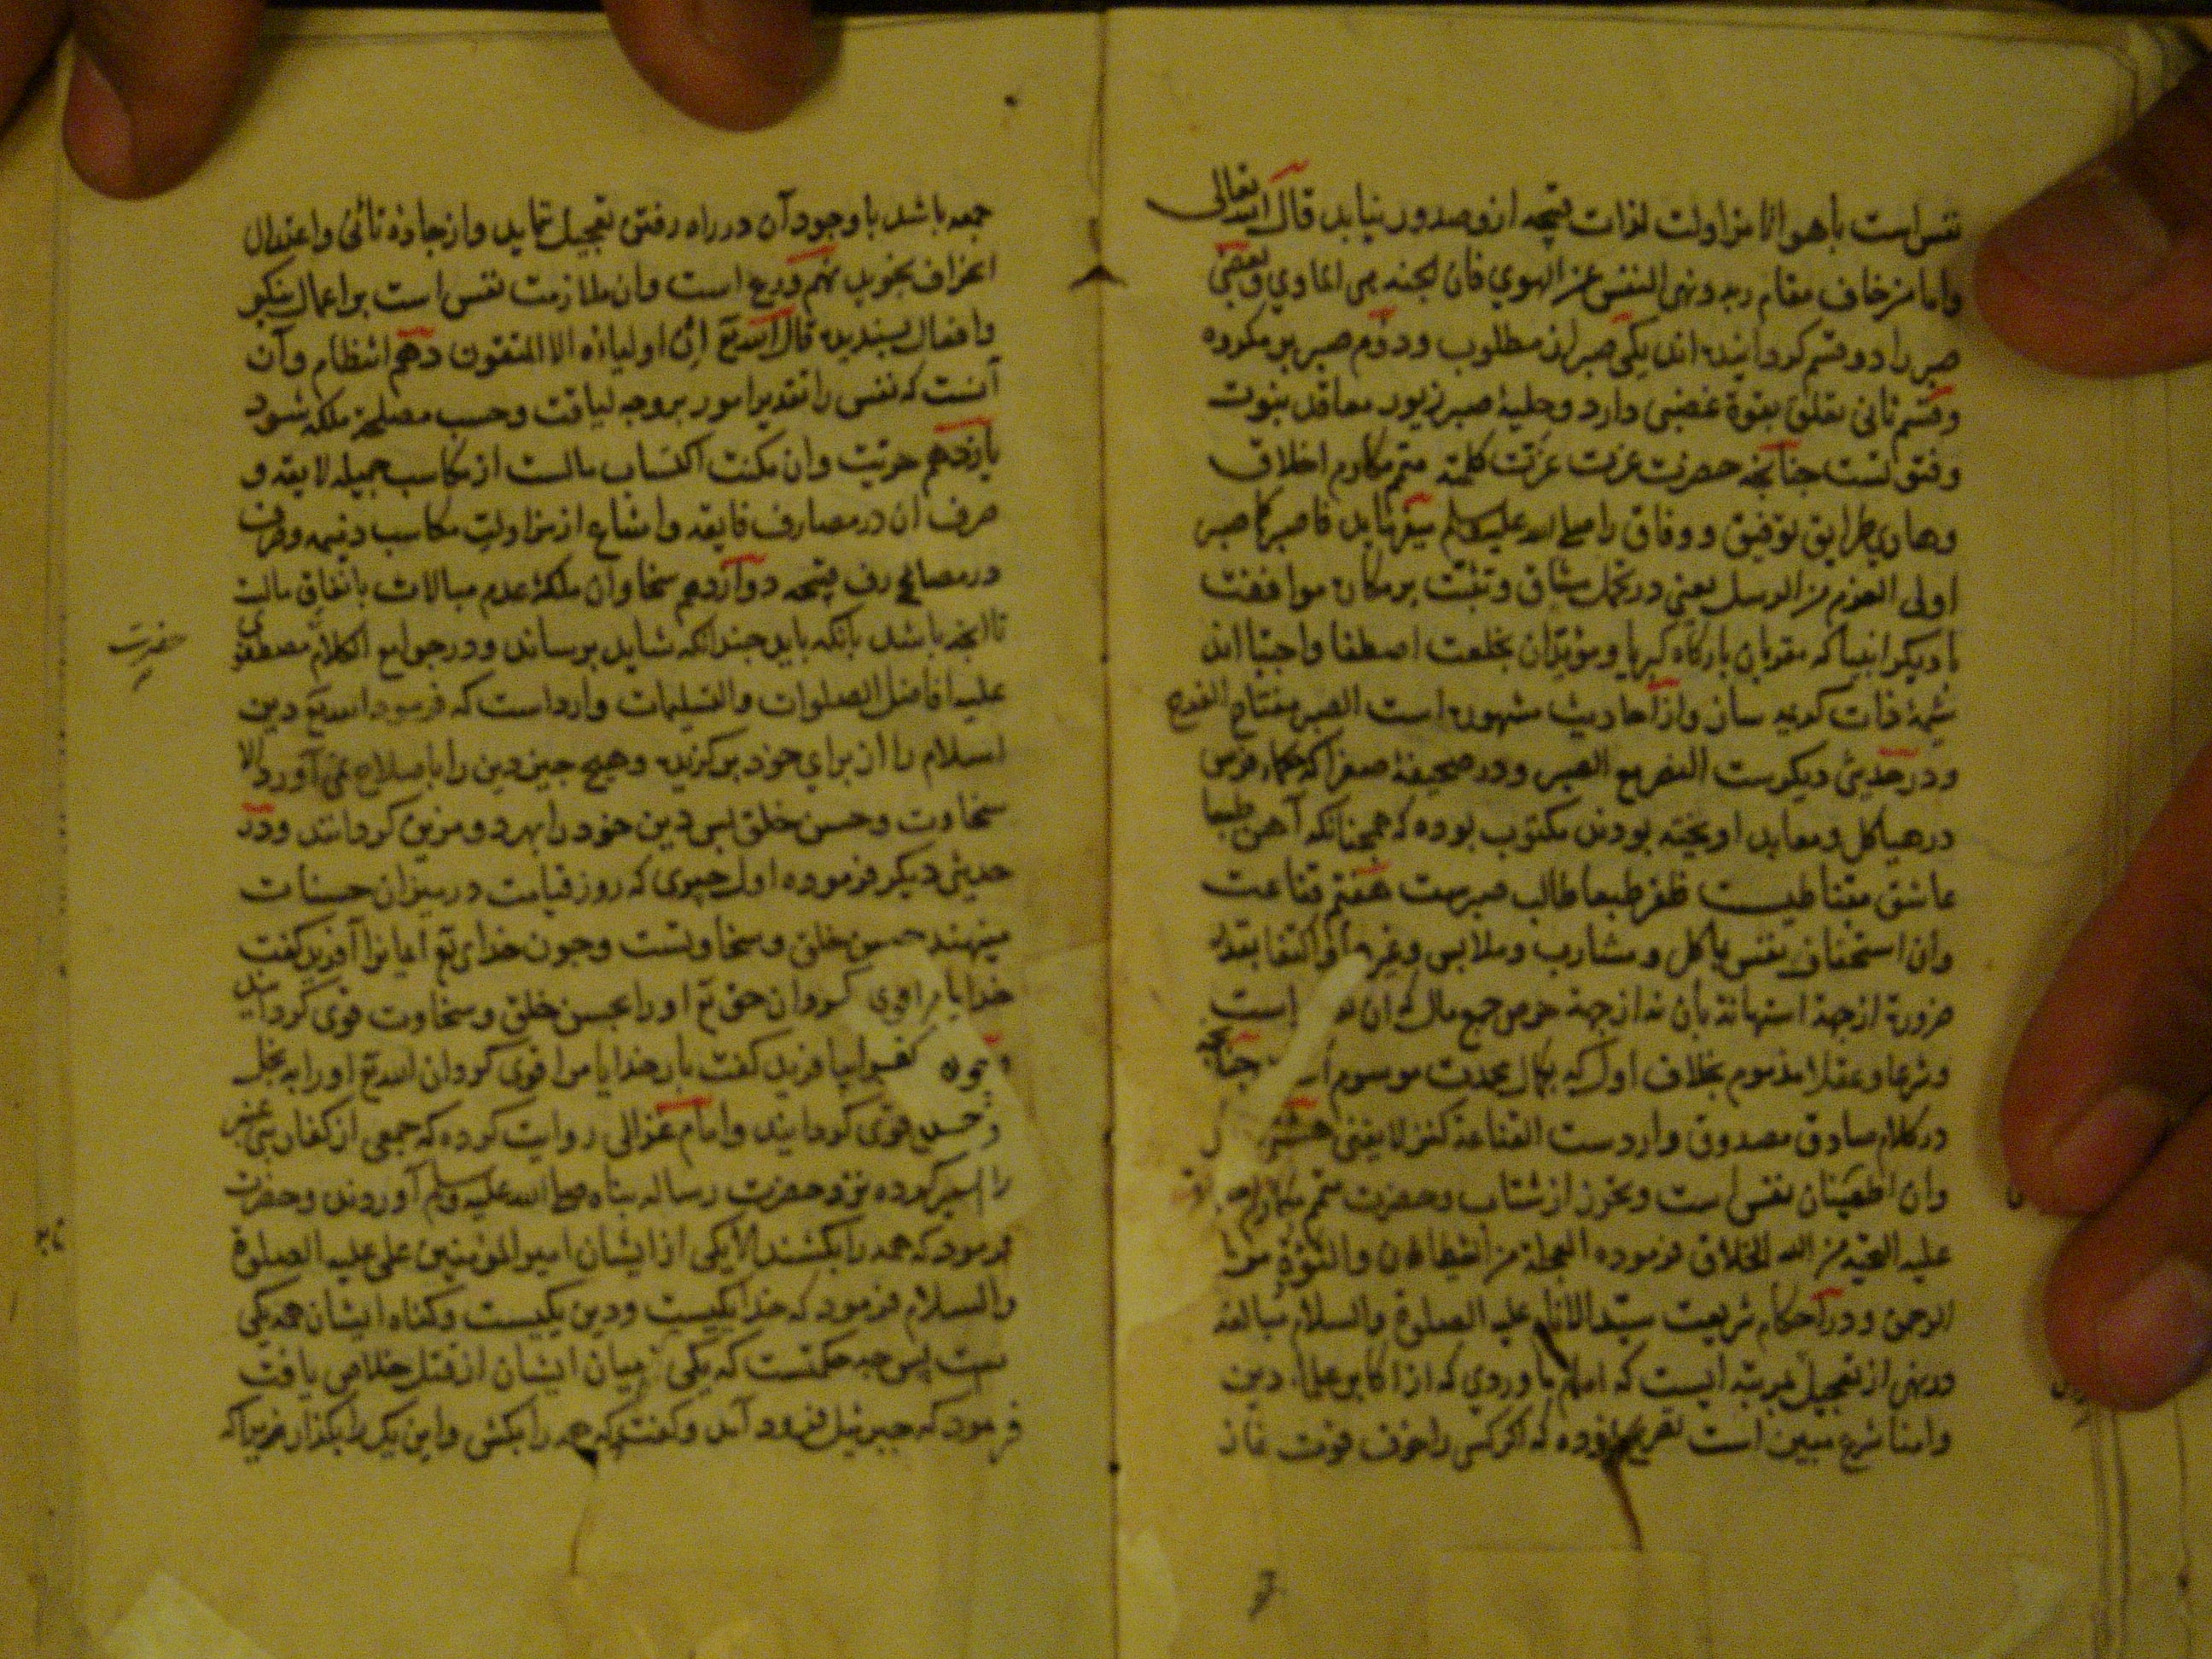 نفس است با هوا تا مزاولت لذات قبیحه ازو صدور نیابد قال الله تعالی
واما من خاف مقام ربه ونهی النفس عن الهوي فان الجنه هی الماوي وبعضی
صبر را دو قسم کردانیده اند یکی صبر از مطلوب ودوم صبر بر مکروه
وقسم ثانی تعلق بقوة غضبی دارد وحلیهٔ صبر زیور معاقد نبوت
وفتوتست جنانجه حضرت عزت عزت کلمته متمم مکارم اخلاق
وهادي طرایق توفیق ووفاق را صلی الله علیه وسلم میفرماید فاصبر کما صبر
اولی العزم من الرسل یعنی در تحمل مشاق وتثبت بر مکاره موافقت
با دیکر انبیا که مقربان بارکاه کبریا ومؤیدان بخلعت اصطفا واجتبا اند
شیمهٔ ذات کریمه سان واز احادیث مشهوره است الصبر مفتاح الفرج
ودر حدیثی دیکرست النصر مع الصبر ودر صحیفهٔ صفرا که حکماء فرس
در هیاکل ومعابد اویخته بودند مکتوب بوده که همجنانکه آهن طبعا
عاشق مقناطیست ظفر طبعا طالب صبرست هفتم قناعت
وان استخفاف نفس بماکل ومشارب وملابس وغیرها واکتفا بقدر
ضرورة از جهة استهانة بان نه از جهة حرص جمع مال که ان است
وشرعا وعقلا مذموم بخلاف اول که بکمال محمدت موسوم جنانجه
در کلام صادق مصدوق واردست القناعة کنز لا یفنی هشتم
وان اطمینان نفس است وتحرز از شتاب وحضرت متمم مکارم
علیه التحیة من الله الخلاق فرموده العجلة من الشیطان والتؤدة من
الرحمن ودر احکام شریعت سید الانام علیه الصلوة والسلام مبالغه
در نهی از تعجیل بمرتبه ایست که امام ماوردي که از اکابر علماء دین
وامناء شرع مبین است تصریح نموده که اکر کسی را خوف فوت نماز
جمعه باشد با وجود آن در راه رفتن تعجیل ننماید واز جادهٔ تأنی واعتدال
انحراف نجوید نهم ورع است وان ملازمت نفس است بر اعمال نیکو
وافعال پسندیده قال الله تع ان اولیاؤه الا المتقون دهم انتظام وآن
آنست که نفس را تقدیر امور بر وجه لیاقت وحسب مصلحة ملکه شود
یازدهم حریت وان مکنت اکتساب مالست از مکاسب جمیله لایقه و
صرف ان در مصارف فایقه وامتناع از مزاولت مکاسب دنیه وصرف
در مصارف قبیحه دوازدهم سخا وان ملکهٔ عدم مبالات بانفاق مالست
تا انجه باشد بانکه باید جندانکه شاید برساند ودر جوامع الکلام مصطفوی
حضرت
علیه افاضل الصلوات والتسلیمات وارد است که فرمود الله تع دین
اسلام را از برای خود برکزیده وهیچ جیز دین را باصلاح نمی آورد الا
سخاوت وحسن خلق پس دین خود را بهر دو مزین کردانند ودر
حدیثی دیکر فرموده اول جیزی که روز قیامت در میزان حسنات
مینهند حسن خلق وسخاوتست وجون خدای تع ایمانرا آفرید کفت
خدایا مرا قوی کردان حق تع اورا بحسن خلق وسخاوت قوی کردانید
وجون کفر را بیافرید کفت بار خدایا مرا قوی کردان الله تع اورا به بخل
وحسد قوی کردانید وامام غزالی روایت کرده که جمعی از کفار بنی عنبر
را اسیر کرده نزد حضرت رسالة پناه صلی الله علیه وسلم آوردند وحضرت
فرمود که همه را بکشند الا یکی از ایشان امیر المؤمنین علی علیه الصلوة
والسلام فرمود که خدا یکیست ودین یکیست وکناه ایشان همه یکی
ست پس جه حکمتست که یکی از میان ایشان از قتل خلاص یافت
فرمود که جبرئیل فرود آمد وکفت که همه را بکش واین یک را بکذار زیرا که